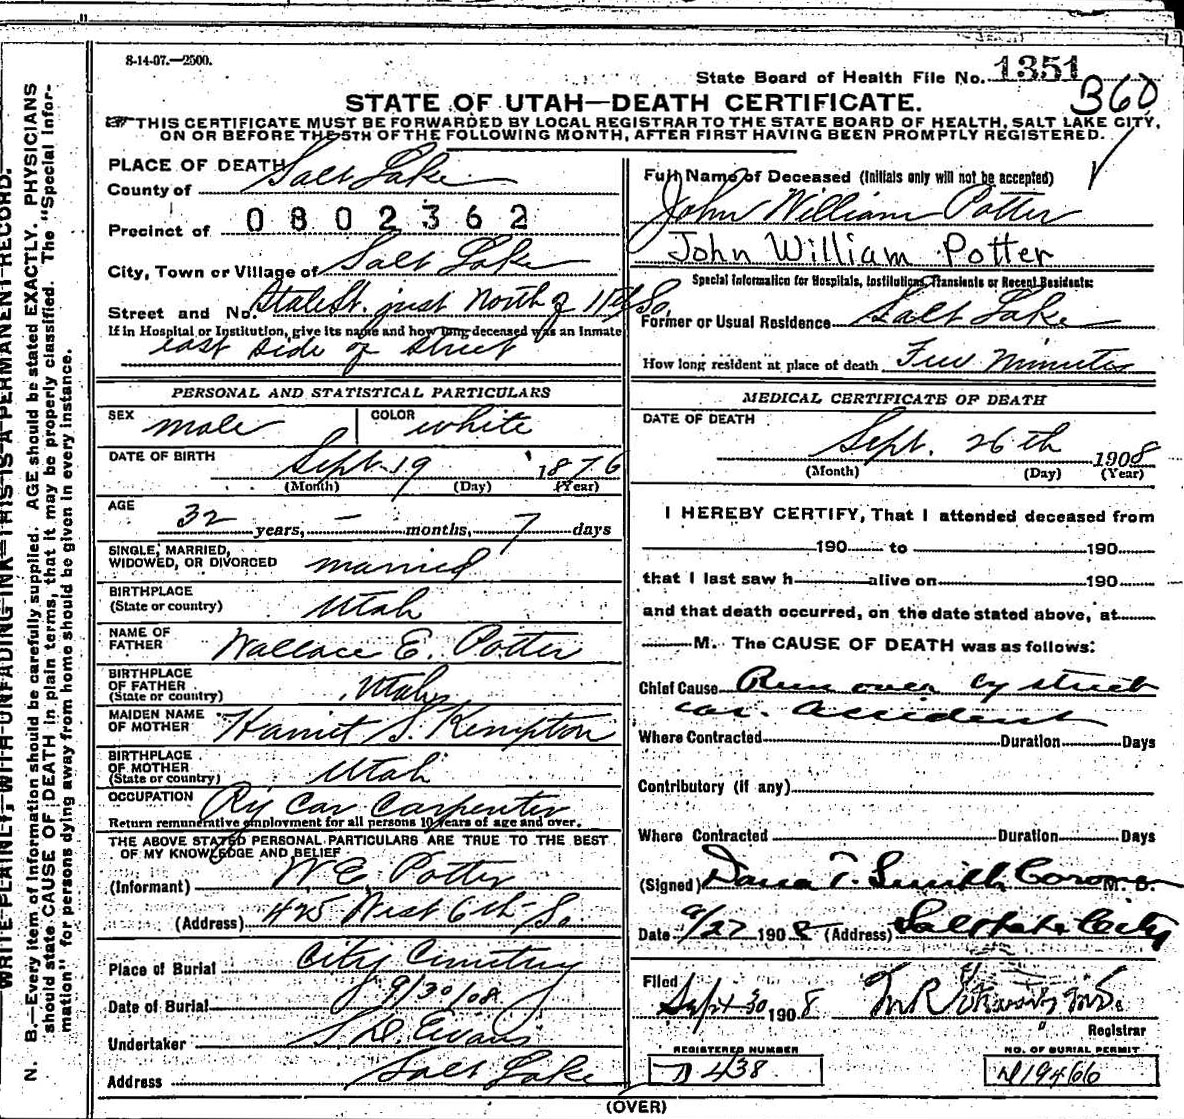 8-14-07.—2500.
State Board of Health File No. 1351
360
STATE OF UTAH—DEATH CERTIFICATE.
☞THIS CERTIFICATE MUST BE FORWARDED BY LOCAL REGISTRAR TO THE STATE BOARD OF HEALTH, SALT LAKE CITY,
ON OR BEFORE THE 5TH OF THE FOLLOWING MONTH, AFTER FIRST HAVING BEEN PROMPTLY REGISTERED.
PLACE OF DEATH
County of Salt Lake
Precinct of 0802362
City, Town or Village of Salt Lake
Street and No. State St. just North of 11th So.
If in Hospital or Institution, give its name and how long deceased was an inmate
east side of street
PERSONAL AND STATISTICAL PARTICULARS
SEX male COLOR white
DATE OF BIRTH Sept. 19 1876
(Month) (Day) (Year)
AGE 32 years, – months, 7 days
SINGLE, MARRIED,
WIDOWED, OR DIVORCED married
BIRTHPLACE
(State or country) Utah
NAME OF
FATHER Wallace E. Potter
BIRTHPLACE
OF FATHER
(State or country) Utah
MAIDEN NAME
OF MOTHER Harriet S. Kempton
BIRTHPLACE
OF MOTHER
(State or country) Utah
OCCUPATION Ry Car Carpenter
Return remunerative employment for all persons 10 years of age and over.
THE ABOVE STATED PERSONAL PARTICULARS ARE TRUE TO THE BEST
OF MY KNOWLEDGE AND BELIEF
(Informant) W E Potter
(Address) 425 West 6th So.
Place of Burial City Cemetery
Date of Burial 9/30/08
Undertaker S D. Evans
Address Salt Lake
Full Name of Deceased (Initials only will not be accepted)
John William Potter
John William Potter
Special Information for Hospitals, Institutions, Transients or Recent Residents:
Former or Usual Residence Salt Lake
How long resident at place of death Few Minutes
MEDICAL CERTIFICATE OF DEATH
DATE OF DEATH
Sept. 26th 1908
(Month) (Day) (Year)
I HEREBY CERTIFY, That I attended deceased from
190 to 190
that I last saw h alive on 190
and that death occurred, on the date stated above, at
M. The CAUSE OF DEATH was as follows:
Chief Cause Run over by street
car. accident
Where Contracted Duration Days
Contributory (if any)
Where Contracted Duration Days
(Signed) Dana T. Smith Coroner M. D.
Date 9/27 1908 (Address) Salt Lake City
Filed
Sept 30 1908 M.D.
Registrar
REGISTERED NUMBER
D 438
NO. OF BURIAL PERMIT
N19466
(OVER)
WRITE PLAINLY, WITH UNFADING INK—THIS IS A PERMANENT RECORD.
N. B.—Every item of Information should be carefully supplied. AGE should be stated EXACTLY. PHYSICIANS
should state CAUSE OF DEATH in plain terms, that it may be properly classified. The "Special Infor-
mation" for persons dying away from home should be given in every instance.